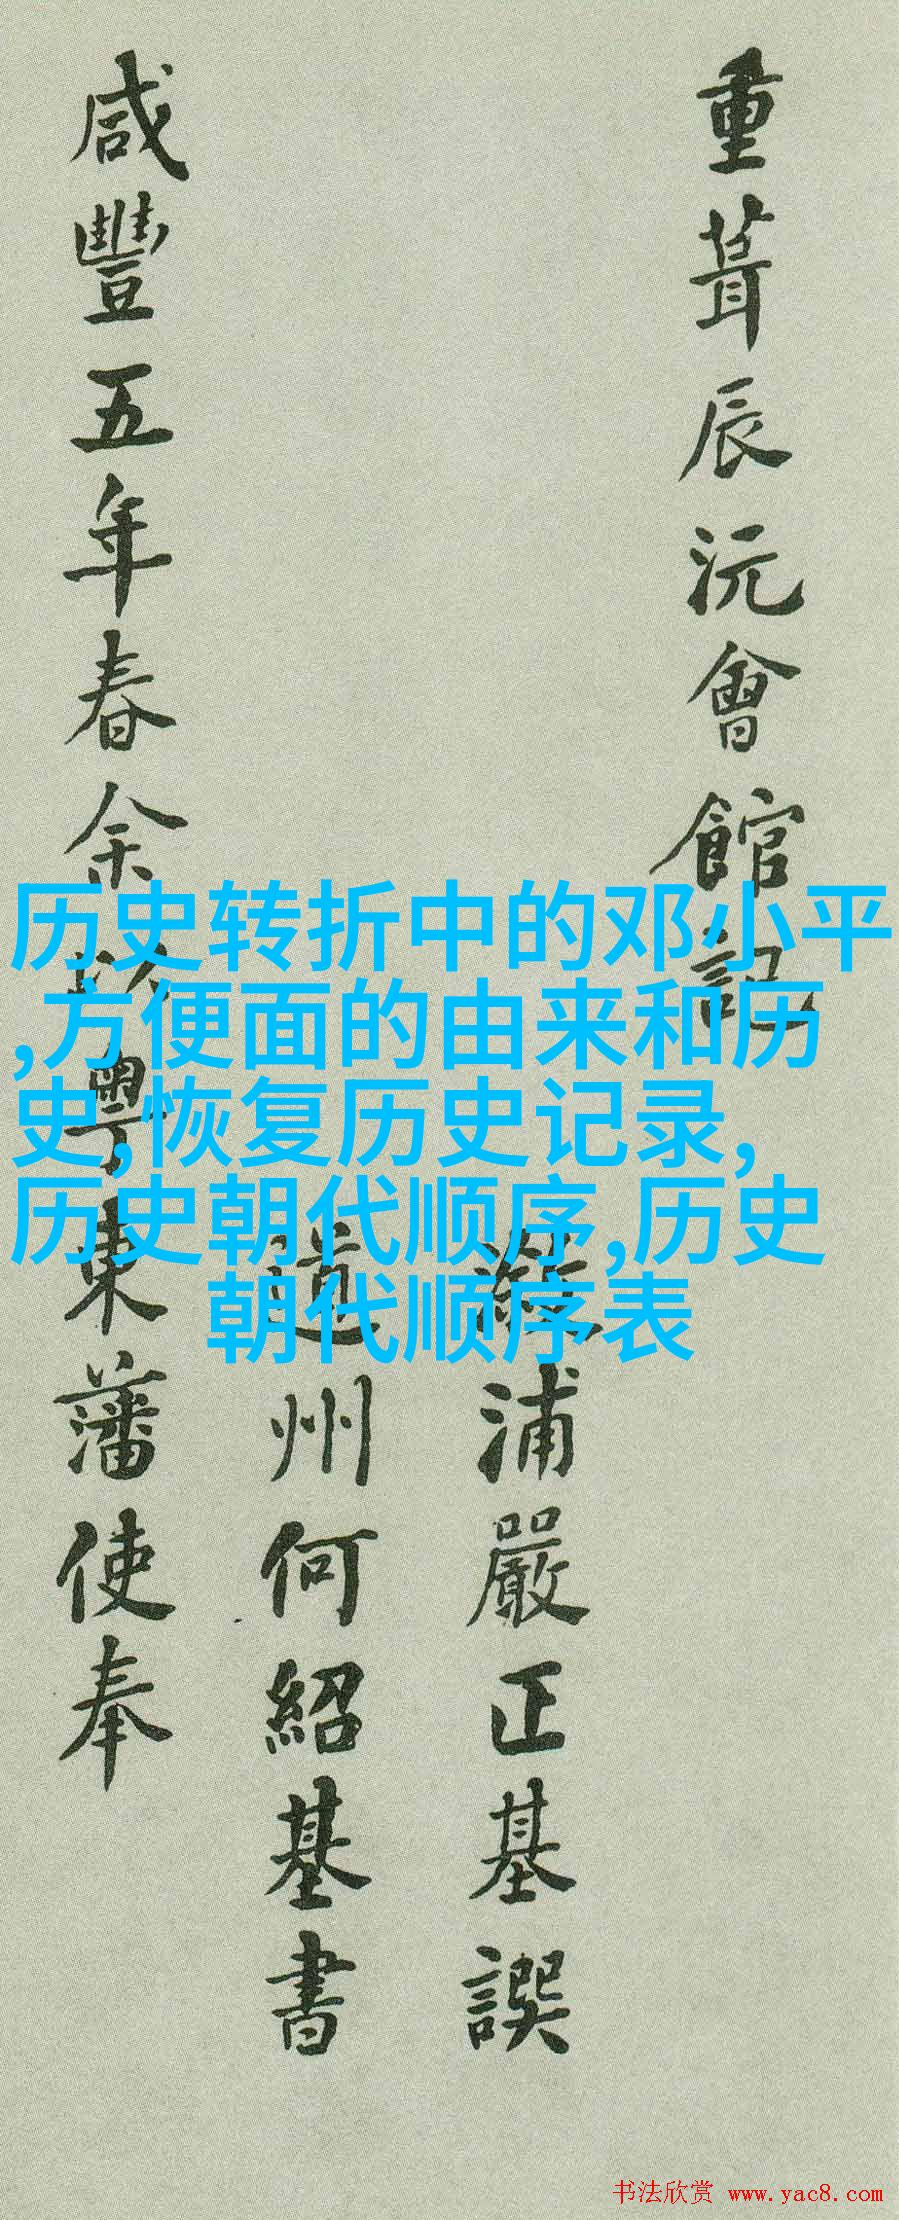 重葺辰沅會館記
漵浦嚴正基譔
道州何紹基書
咸豐五年春余以粵東藩使奉
历史转折中的邓小平
,方便面的由来和历
史,恢复历史记录,
历史朝代顺序,历史
朝代顺序表
书法欣赏 www.yac8.com